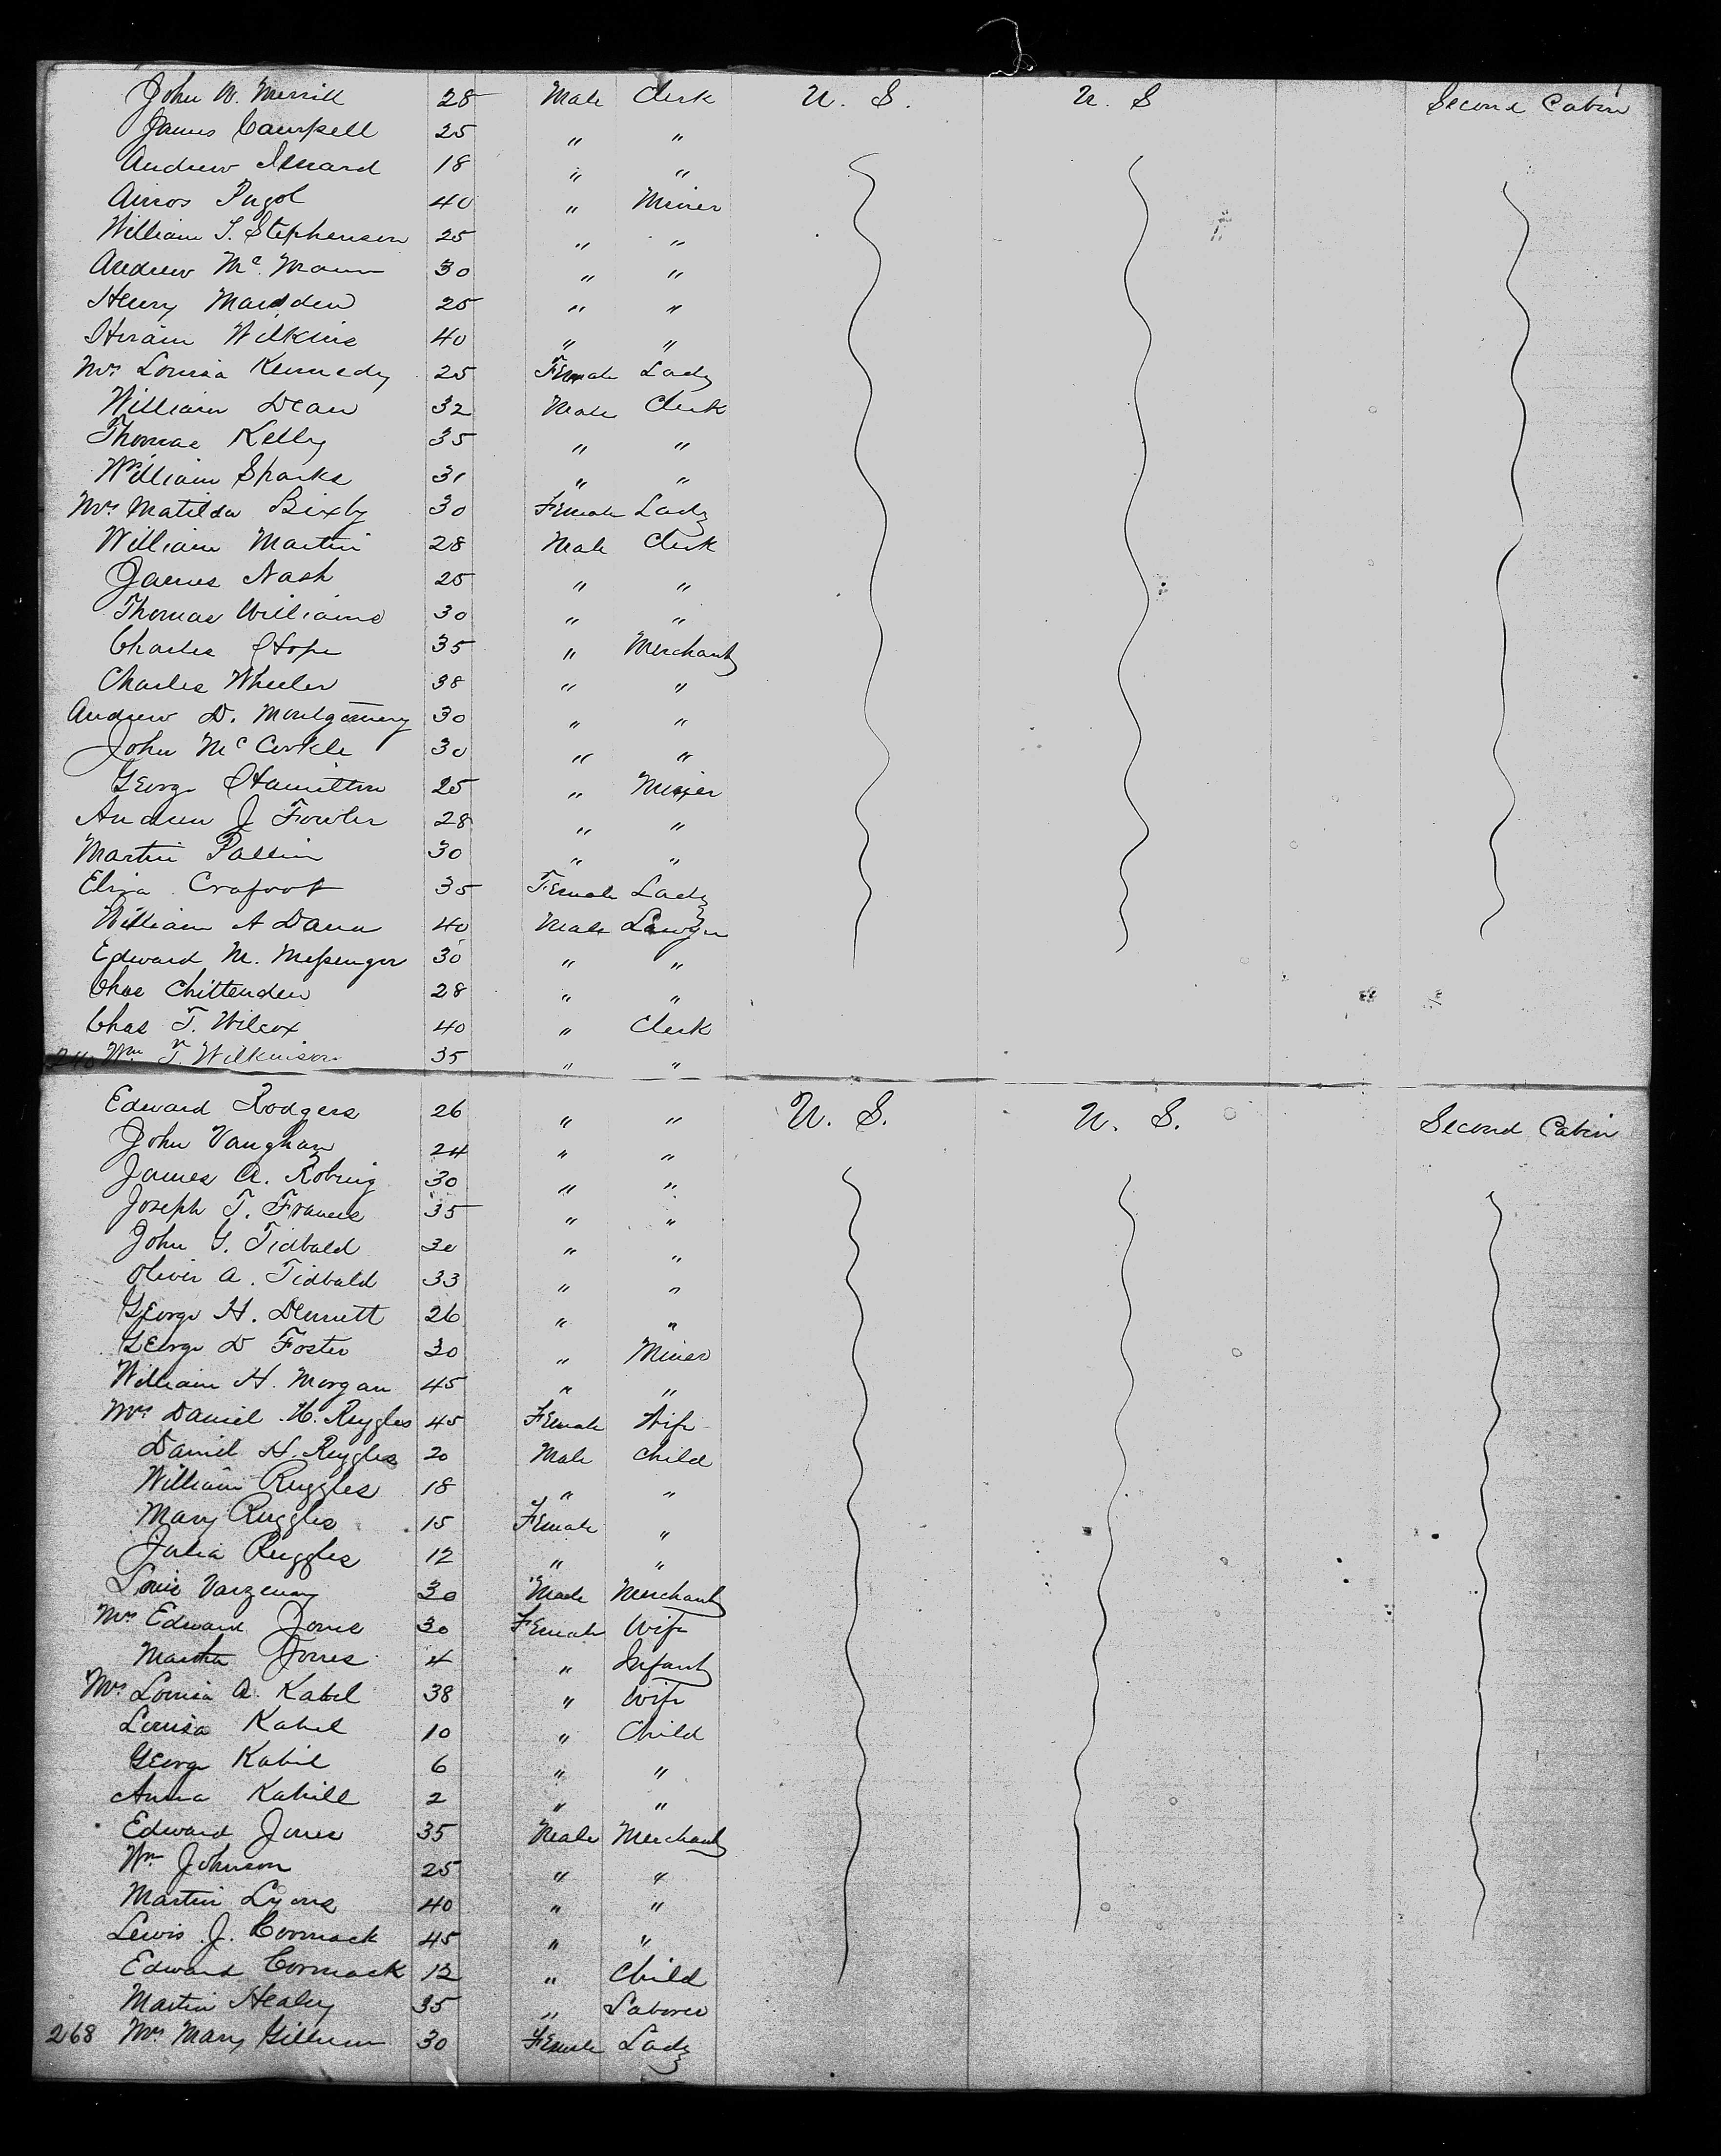 John W. Merrill 28 Male Clerk U. S. U. S Second Cabin
James Campell 25 " "
Andrew 18 " "
Amos 40 " Miner
William S. Stephenson 25 " "
Andrew Mc. Mann 30 " "
Henry Marsden 25 " "
Hiram Wilkins 40 " "
Mrs Louisa Kennedy 25 Female Lady
William Dean 32 Male Clerk
Thomas Kelly 35 " "
William Sparks 31 " "
Mrs Matilda Bixby 30 Female Lady
William Martin 28 Male Clerk
James Nash 25 " "
Thomas Williams 30 " "
Charles Hope 35 " Merchant
Charles Wheeler 38 " "
Andrew D. Montgomery 30 " "
John Mc Corkle 30 " "
George Hamilton 25 " Miner
Andrew J Fowler 28 " "
Martin Pallin 30 " "
Eliza Crafoot 35 Female Lady
William A Dana 40 Male Lawyer
Edward M. Messenger 30 " "
Chas Chittenden 28 " "
Chas T. Wilcox 40 " Clerk
240 Wm T. Wilkinson 35 " "
Edward Rodgers 26 " " U. S. U. S. Second Cabin
John Vaughan 24 " "
James A. 30 " "
Joseph T. Francis 35 " "
John G. Tidbald 30 " "
Oliver A. Tidbald 33 " "
George H. Dennett 26 " "
George D Foster 30 " Miner
William H. Morgan 45 " "
Mrs Daniel H. Ruggles 45 Female Wife
Daniel H. Ruggles 20 Male Child
William Ruggles 18 " "
Mary Ruggles 15 Female "
Julia Ruggles 12 " "
Louis 30 Male Merchant
Mrs Edward Jones 30 Female Wife
Martha Jones 4 " Infant
Mrs Louisa A. Kabel 38 " Wife
Louisa Kahel 10 " Child
George Kahil 6 " "
Anna Kahill 2 " "
Edward Jones 35 Male Merchant
Wm Johnson 25 " "
Martin Lyons 40 " "
Lewis J. Cormack 45 " "
Edward Cormack 12 " Child
Martin Healey 35 " Laborer
268 Mrs Mary 30 Female Lady